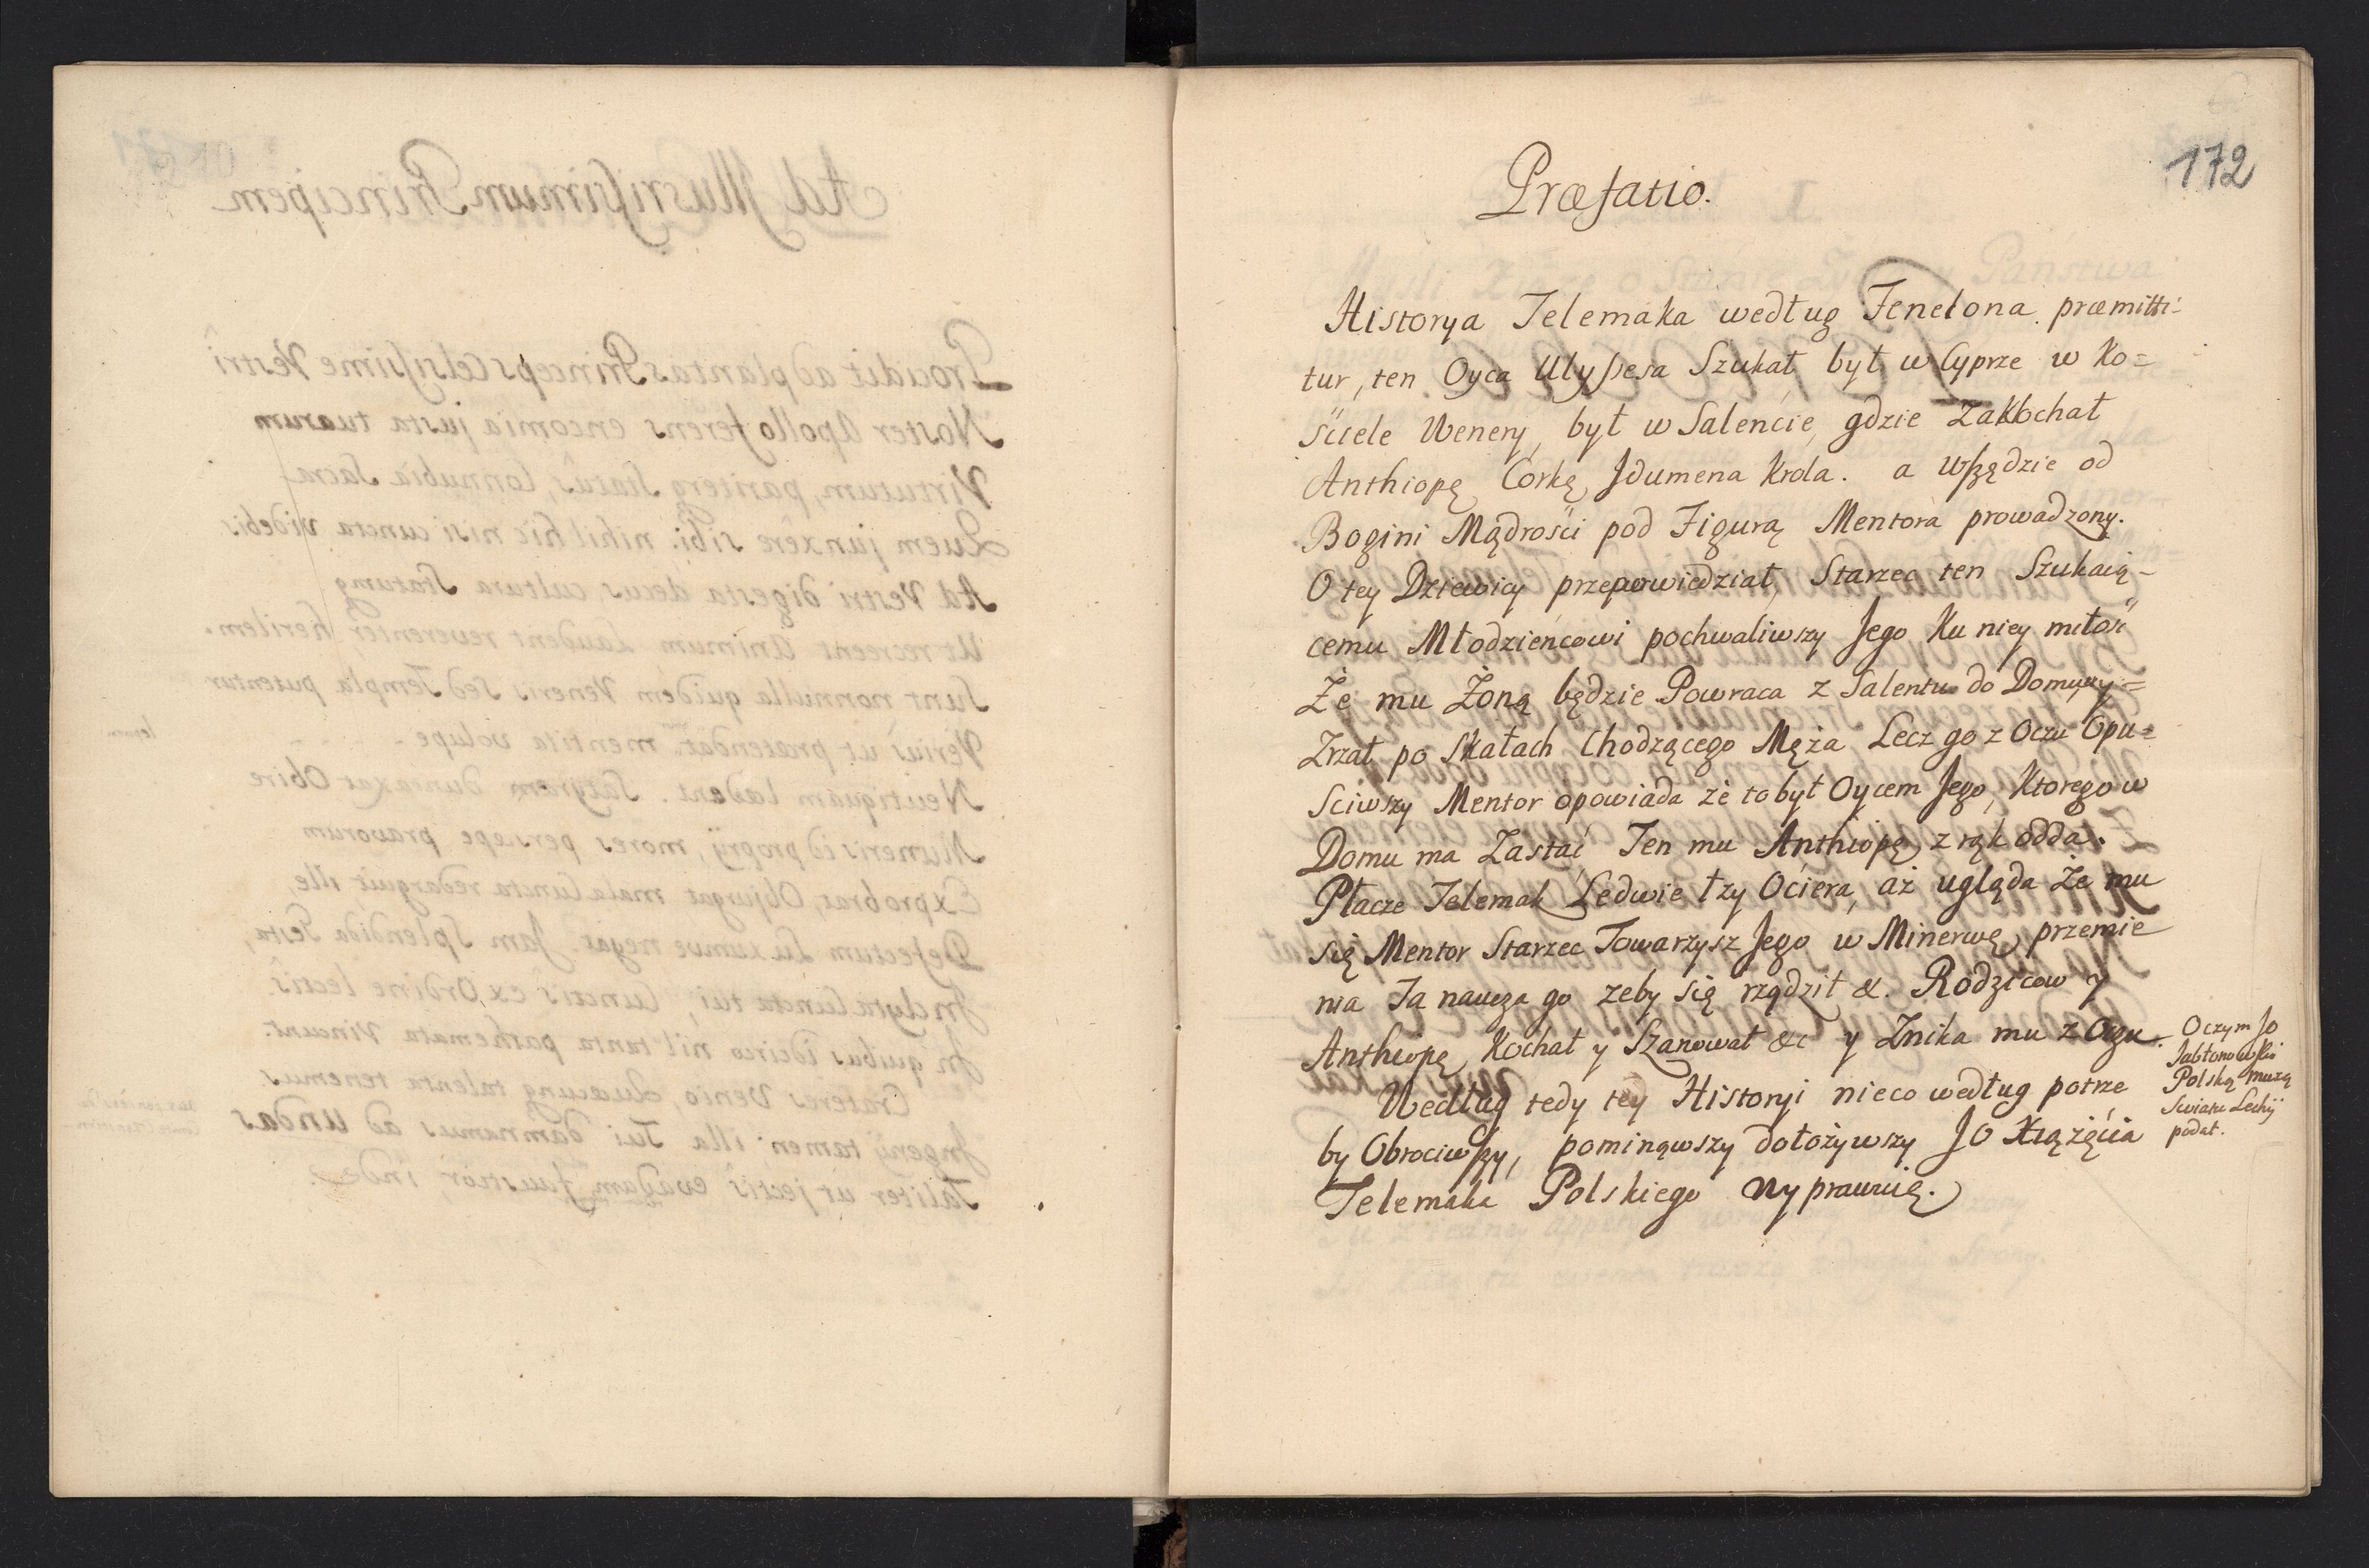 172
Præfatio.
Historya Telemaka według Fenelona præmitti-
tur, ten Oyca Ulyssesa Szukał był w Cyprze w Ko=
sciele Wenery, był w Salencie, gdzie zakochał
Anthiopę Corkę Jdumena Krola. a Wszędzie od
Bogini Mądrości pod Figurą Mentora prowadzony.
O tey Dziewicy przepowiedział Starzec ten Szukaią-
cemu Młodzieńcowi pochwaliwszy Jego Ku niey miłość
Że mu Żoną będzie Powraca z Salentu do Domu wy=
Zrzał po Skałach Chodzącego Męża Lecz go z Oczu Opu=
sciwszy Mentor opowiada że to był Oycem Jego, Ktorego w
Domu ma Zastać Ten mu Anthiopę z rąk odda.
Płacze Telemak Ledwie łzy Ociera, aż ugląda Że mu
się Mentor Starzec Towarzysz Jego w Minerwę przemie
nia Ta naucza go zeby się rządził &. Rodzicow y
Anthiopę Kochał y Szanował &c y Znika mu z Oczu.
Według tedy tey Historyi nieco według potrze
by Obrociwszy, pominąwszy dołożywszy JO Xiążęcia
Telemaka Polskiego Wyprawuię.
O czym JO
Jabłonowski
Polską muzą
Swiatu Lechij
podał.